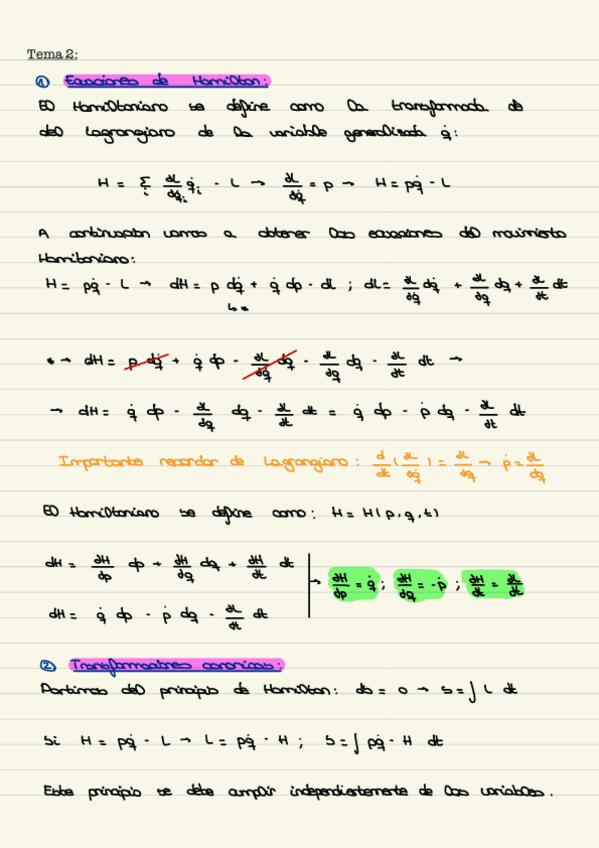 Tema 2:
① Ecuaciones de Hamilton:
El Hamiltoniano se define como la transformada de
del Lagrangiano de la variable generalizada q̇:
H = Σᵢ dL/dq̇ᵢ q̇ᵢ - L → dL/dq̇ = p → H = pq̇ - L
A continuación vamos a obtener las ecuaciones del movimiento
Hamiltoniano:
H = pq̇ - L → dH = p dq̇ + q̇ dp - dL ; dL = dL/dq̇ dq̇ + dL/dq dq + dL/dt dt
↳ *
* → dH = p dq̇ + q̇ dp - dL/dq̇ dq̇ - dL/dq dq - dL/dt dt →
→ dH = q̇ dp - dL/dq dq - dL/dt dt = q̇ dp - ṗ dq - dL/dt dt
Importante recordar de Lagrangiano: d/dt (dL/dq̇) = dL/dq → ṗ = dL/dq
El Hamiltoniano se define como: H = H(p, q, t)
dH = dH/dp dp + dH/dq dq + dH/dt dt
→ dH/dp = q̇ ; dH/dq = -ṗ ; dH/dt = dL/dt
dH = q̇ dp - ṗ dq - dL/dt dt
② Transformaciones canonicas:
Partimos del principio de Hamilton: ds = 0 → S = ∫ L dt
Si H = pq̇ - L → L = pq̇ - H ; S = ∫ pq̇ - H dt
Este principio se debe cumplir independientemente de las variables.